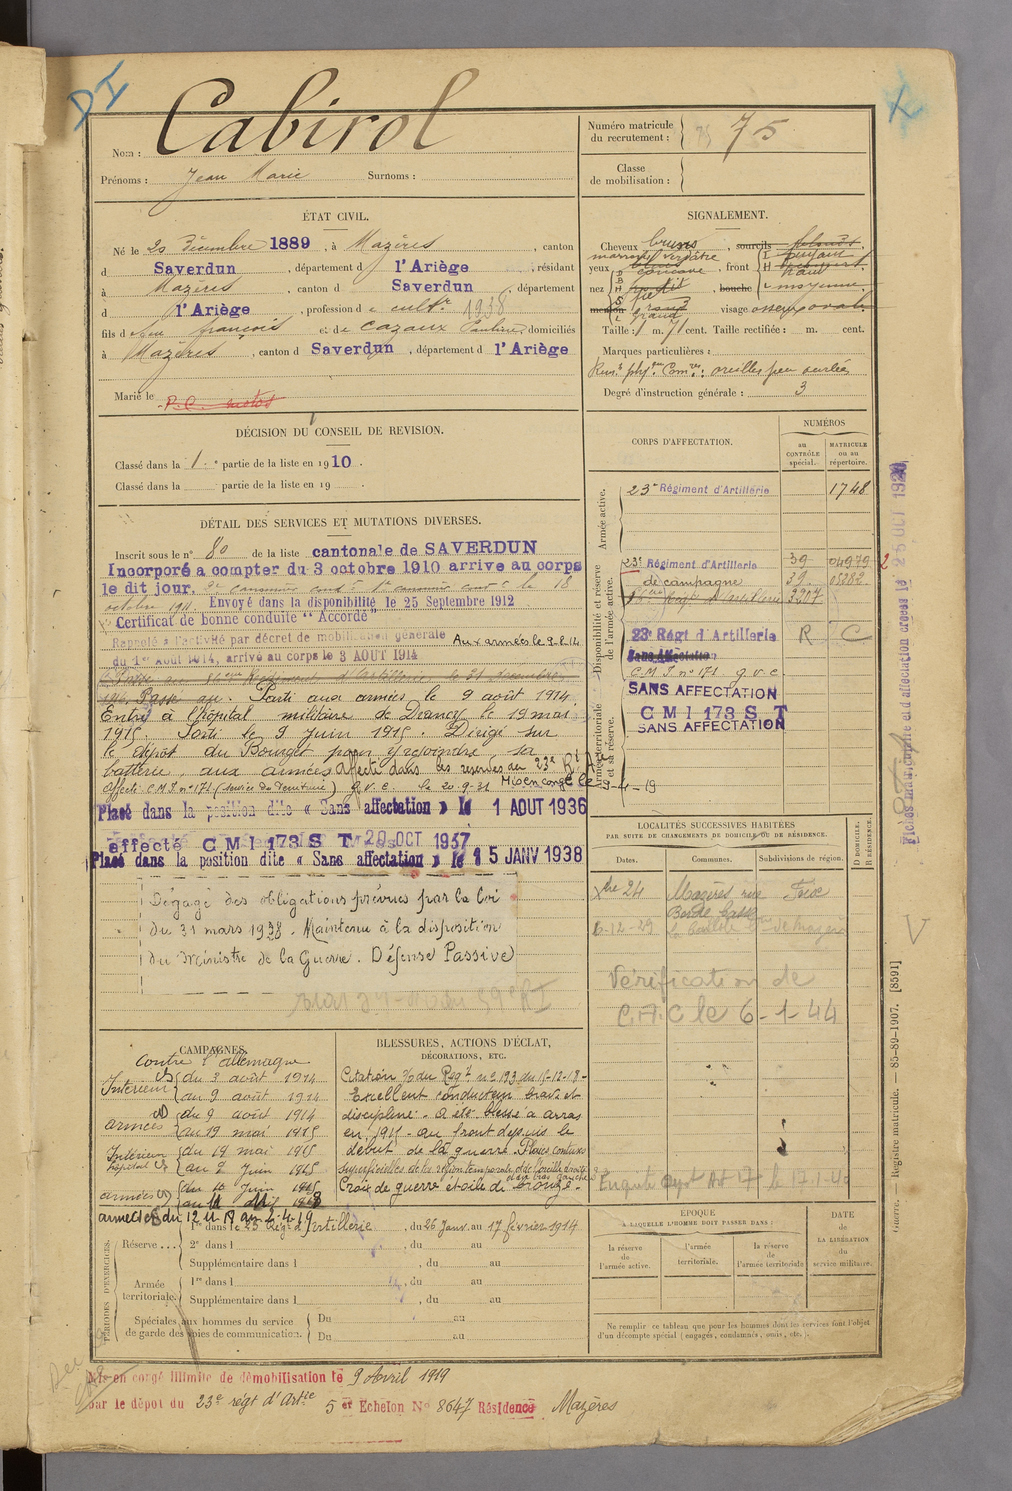 DI
Nom : Cabirol
Prénoms : Jean Marie Surnoms :
Numéro matricule du recrutement : 75
Classe de mobilisation :
ÉTAT CIVIL.
Né le 20 Décembre 1889, à Mazères, canton
d Saverdun, département d l'Ariège, résidant
à Mazères, canton d Saverdun, département
d l'Ariège, profession de cultr 1938
fils d feu françois et de Cazaux Pauline, domiciliés
à Mazères, canton d Saverdun, département d l'Ariège
Marié le
SIGNALEMENT.
Cheveux bruns, sourcils
marrons verdâtre
yeux, front
nez, bouche moyenne
menton visage osseux ovale
Taille : 1 m. 71 cent. Taille rectifiée : m. cent.
Marques particulières :
oreilles peu ourlées
Degré d'instruction générale : 3
DÉCISION DU CONSEIL DE REVISION.
Classé dans la 1re partie de la liste en 1910.
Classé dans la partie de la liste en 19
DÉTAIL DES SERVICES ET MUTATIONS DIVERSES.
Inscrit sous le n° 80 de la liste cantonale de SAVERDUN
Incorporé a compter du 3 octobre 1910 arrive au corps
le dit jour. 2e canonnier condr 1er canonnier condr le 18
octobre 1911. Envoyé dans la disponibilité le 25 Septembre 1912
Certificat de bonne conduite "Accordé"
Rappelé à l'activité par décret de mobilisation générale Aux armées le 9.8.14
du 1er Août 1914, arrivé au corps le 3 AOUT 1914
Parti aux armées le 9 août 1914.
Entré à l'hôpital militaire de Drancy le 19 mai
1915. Sorti le 9 Juin 1915. Dirigé sur
le dépôt du Bourget pour y rejoindre sa
batterie, aux armées Affecté dans les réserves du 23e Rt Aie
Mis en congé le 9-4-19
Affecté C.M.I. n° 171 (service du Territoire) g.v.c. le 20.9.31
Placé dans la position dite « Sans affectation » le 1 AOUT 1936
affecté C M I 173 S T 20 OCT 1937
Placé dans la position dite « Sans affectation » le 15 JANV 1938
Dégagé des obligations prévues par la loi
du 31 mars 1928. Maintenu à la disposition
du Ministre de la Guerre. Défense Passive
CORPS D'AFFECTATION.
NUMÉROS
au CONTRÔLE spécial.
MATRICULE ou au répertoire.
Armée active.
23e Régiment d'Artillerie 1748
Disponibilité et réserve de l'armée active.
23e Régiment d'Artillerie 39 04979 2
de campagne 39 05282
3207
23e Régt d'Artillerie R C
Sans Affectation
C M I n° 171 g v c
SANS AFFECTATION
C M I 173 S T
SANS AFFECTATION
Armée territoriale et sa réserve.
LOCALITÉS SUCCESSIVES HABITÉES
PAR SUITE DE CHANGEMENTS DE DOMICILE OU DE RÉSIDENCE.
Dates. Communes. Subdivisions de région. D DOMICILE. R RÉSIDENCE.
Xbre 24 Mazères rue Foix
Borde basse
6-12-29
Vérification de
C.A.C le 6-1-44
CAMPAGNES.
contre l'allemagne
Intérieur du 3 août 1914
au 9 août 1914
armées du 9 août 1914
au 19 mai 1915
Intérieur hôpital du 19 mai 1915
au 9 Juin 1915
armées du 10 Juin 1915
armées du 12 4 18 au 2-4-19
BLESSURES, ACTIONS D'ÉCLAT,
DÉCORATIONS, ETC.
Citation % du Regt n° 193 du 15-12-18 -
Excellent conducteur brave et
discipliné - a été blessé à arras
en 1915 - au front depuis le
début de la guerre. Plaies contuses
superficielles de la région temporale, et de l'oreille droite
et du bras gauche
Croix de guerre étoile de bronze.
Enquête dept Art 17 le 17.1.40
PÉRIODES D'EXERCICES.
Réserve... 1re dans l 23 Rég. d'artillerie, du 26 Janv. au 17 février 1914
2e dans l , du au
Supplémentaire dans l , du au
Armée territoriale. 1re dans l , du au
Supplémentaire dans l , du au
Spéciales aux hommes du service de garde des voies de communication. Du au
Du au
ÉPOQUE
A LAQUELLE L'HOMME DOIT PASSER DANS :
la réserve de l'armée active.
l'armée territoriale.
la réserve de l'armée territoriale
DATE de LA LIBÉRATION du service militaire.
Ne remplir ce tableau que pour les hommes dont les services font l'objet
d'un décompte spécial (engagés, condamnés, omis, etc.).
Guerre. — Registre matricule. — 85-89-1907. [8591]
Mis en congé illimité de démobilisation le 9 Avril 1919
par le dépôt du 23e régt d'Artie 5 eme Echelon N° 8647 Résidence Mazères